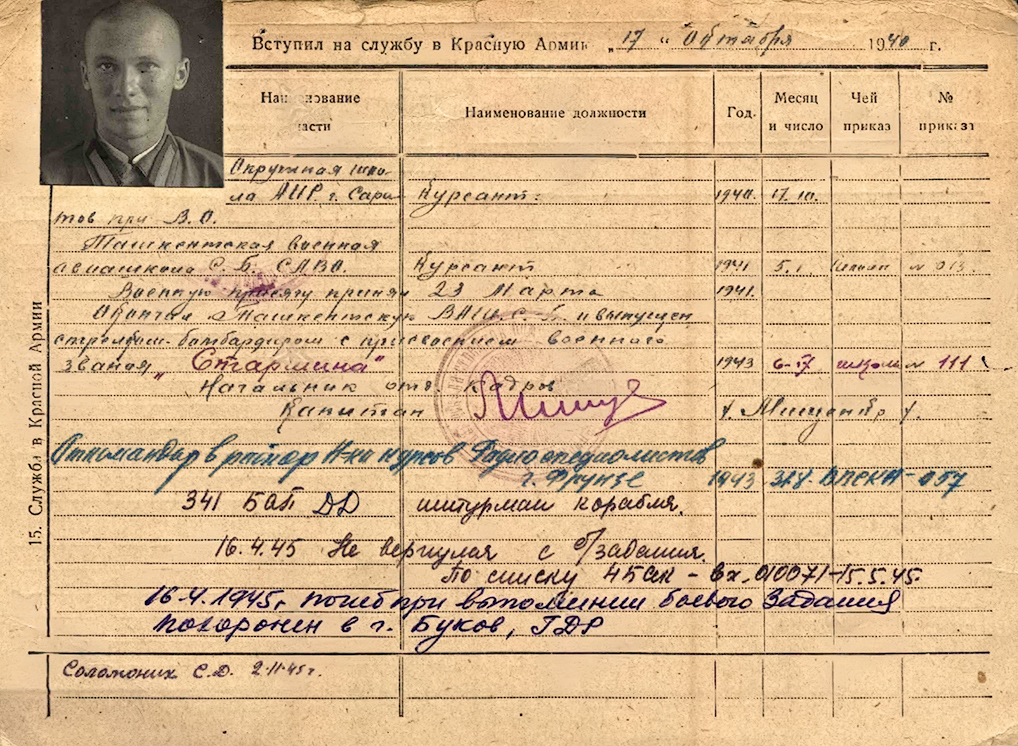 Вступил на службу в Красную Армию „17“ Октября 1940 г.
Наименование части Наименование должности Год. Месяц и число Чей приказ № приказа
Окружная шко-
ла АИР. г. Сара- Курсант. 1940. 17.10.
тов при В.О.
Ташкентская военная
авиашкола С.Б. САВО. Курсант 1941 5.1 школы № 013.
Военную присягу принял 23 Марта 1941.
Окончил Ташкентскую ВАШ.С.Б. и выпущен
стрелком-бомбардиром с присвоением военного
звания „Старшина“ 1943 6-17 школы № 111
Начальник отд. кадров
Капитан /. Мищенко /.
Откомандир в распор курсов Радиоспециалистов
г. Фрунзе 1943 057
341 БАП ДД штурман корабля.
16.4.45 Не вернулся с б/задания.
По списку 45ак - вх. 010071-15.5.45.
16.4.1945г. погиб при выполнении боевого задания
Похоронен в г. Буков, ГДР
Соломоник С.Д. 2.11.45г.
15. Служба в Красной Армии